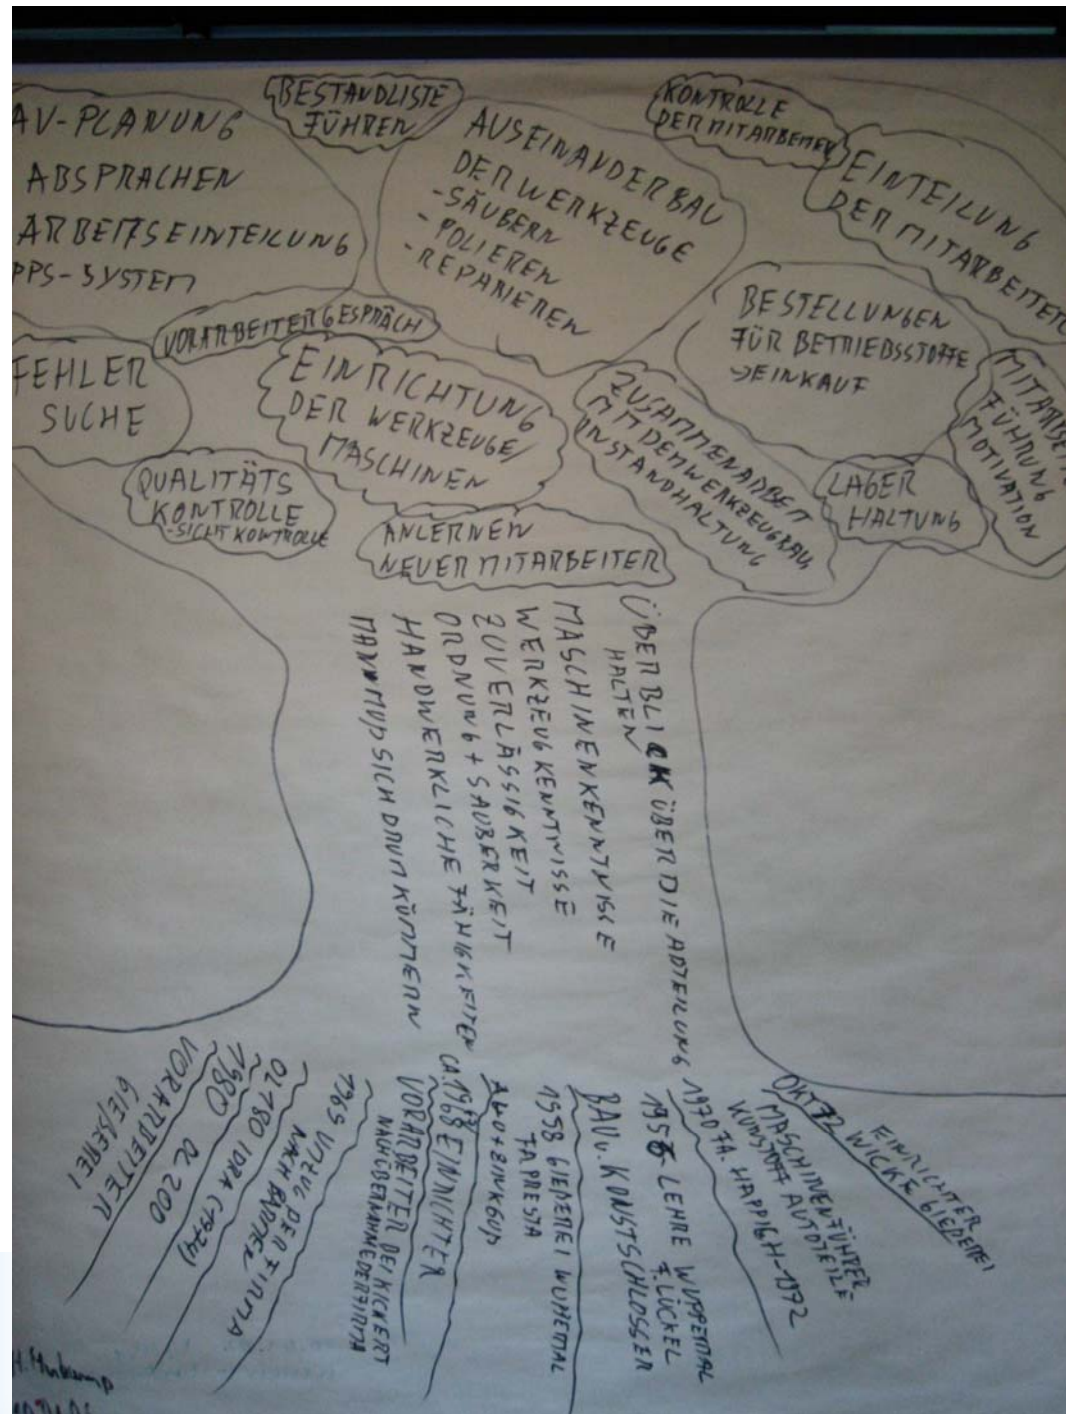 AV-PLANUNG
ABSPRACHEN
ARBEITSEINTEILUNG
PPS-SYSTEM
BESTANDLISTE
FÜHREN
AUSEINANDERBAU
DER WERKZEUGE
-SÄUBERN
-POLIEREN
-REPARIEREN
KONTROLLE
DER MITARBEITER
EINTEILUNG
DER MITARBEITER
BESTELLUNGEN
FÜR BETRIEBSSTOFFE
->EINKAUF
VORARBEITERGESPRÄCH
FEHLER
SUCHE
EINRICHTUNG
DER WERKZEUGE/
MASCHINEN
ZUSAMMENARBEIT
MIT DEM WERKZEUGBAU
INSTANDHALTUNG
MITARBEITER
FÜHRUNG
MOTIVATION
QUALITÄTS
KONTROLLE
-SICHTKONTROLLE
LAGER
HALTUNG
ANLERNEN
NEUER MITARBEITER
ÜBERBLICK ÜBER DIE ABTEILUNG
HALTEN
MASCHINENKENNTNISSE
WERKZEUGKENNTNISSE
ZUVERLÄSSIGKEIT
ORDNUNG + SAUBERKEIT
HANDWERKLICHE FÄHIGKEITEN
MAN MUß SICH DRUM KÜMMERN
OKT 72
EINRICHTER
WICKE GIEßEREI
MASCHINENFÜHRER
KUNSTOFF AUTOTEILE
1970 FA. HAPPICH-1972
1958 LEHRE WUPPERTAL
F. LÜCKEL
BAU u. KONSTSCHLOSSER
1958 GIEßEREI WUPPERTAL
FA PRESTA
ALU + ZINKGUß
CA. 1968 EINRICHTER
VORARBEITER BEI KICKERT
NACH ÜBERNAHME DER FIRMA
1969 UMZUG DER FIRMA
NACH BARMEN
OL 180 IDRA (1974)
1980 OL 200
VORARBEITER
GIEßEREI